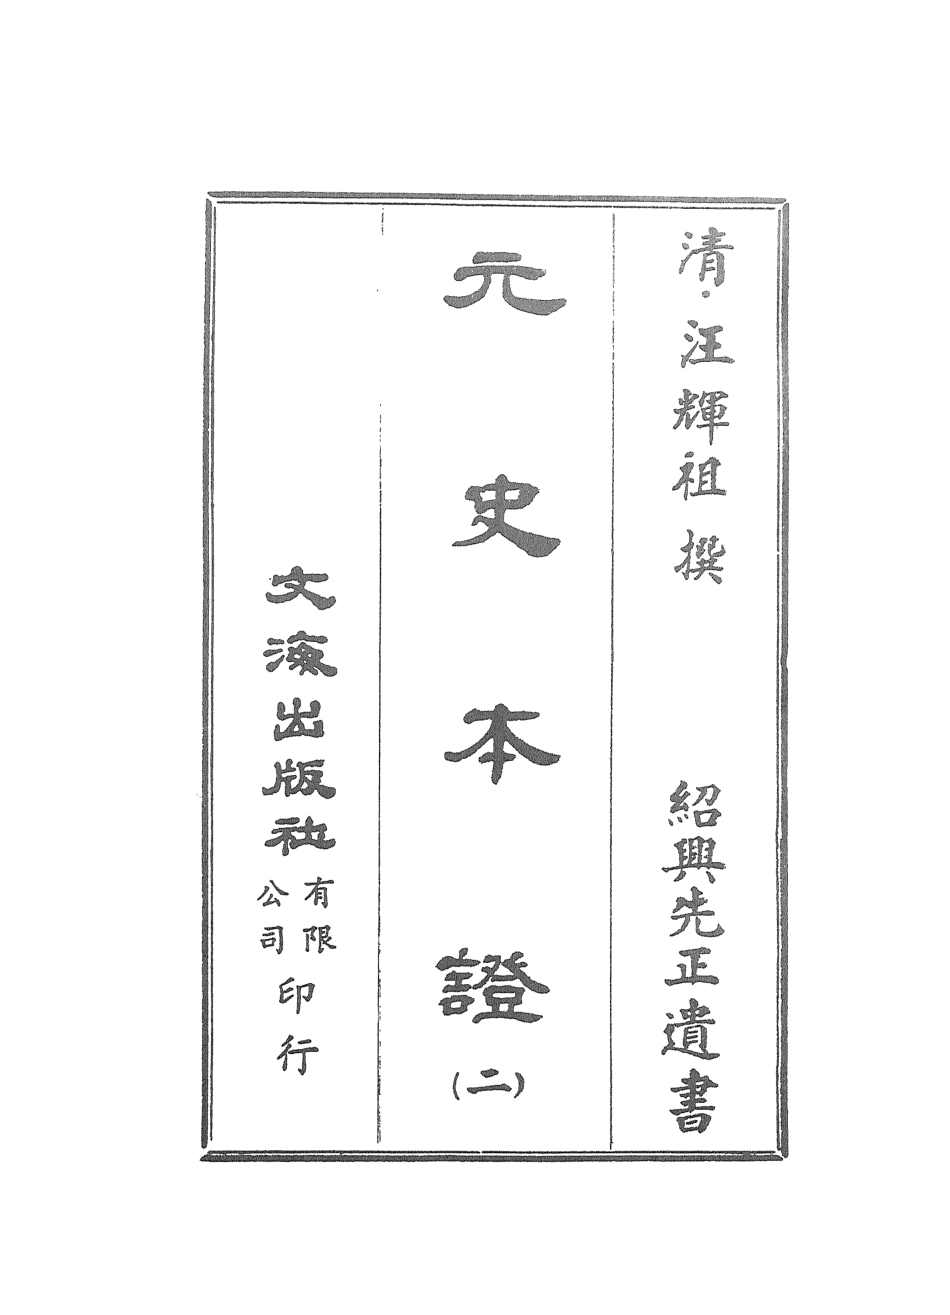 清·汪輝祖 撰
紹興先正遺書
元史本證
(二)
文海出版社
有限
公司
印行